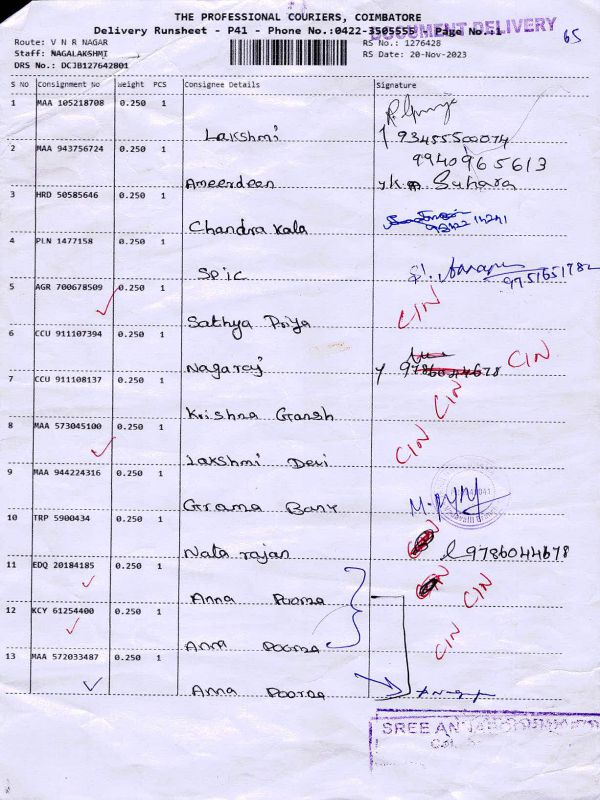 THE PROFESSIONAL COURIERS, COIMBATORE
DOCUMENT DELIVERY
Delivery Runsheet - P41 - Phone No.:0422-3505555 - Page No.:1
65
Route: V N R NAGAR
RS No.: 1276428
Staff: NAGALAKSHMI
RS Date: 20-Nov-2023
DRS No.: DCJB127642801
S NO Consignment No Weight PCS Consignee Details Signature
1 MAA 105218708 0.250 1
Lakshmi 93455500074
9940965613
2 MAA 943756724 0.250 1
Ameerdeen Suhara
3 HRD 50585646 0.250 1
Chandra kala
4 PLN 1477158 0.250 1
Spic 9751651782
5 AGR 700678509 0.250 1
Sathya Priya CIN
6 CCU 911107394 0.250 1
Nagaraj 9786044678 CIN
7 CCU 911108137 0.250 1
Krishna Gransh CIN
8 MAA 573045100 0.250 1
Lakshmi Devi CIN
9 MAA 944224316 0.250 1
Grama Bank
10 TRP 5900434 0.250 1
Nata rajan 9786044678
11 EDQ 20184185 0.250 1
Anna Poorna CIN
12 KCY 61254400 0.250 1
Anna Poorna CIN
13 MAA 572033487 0.250 1
Anna Poorna
SREE